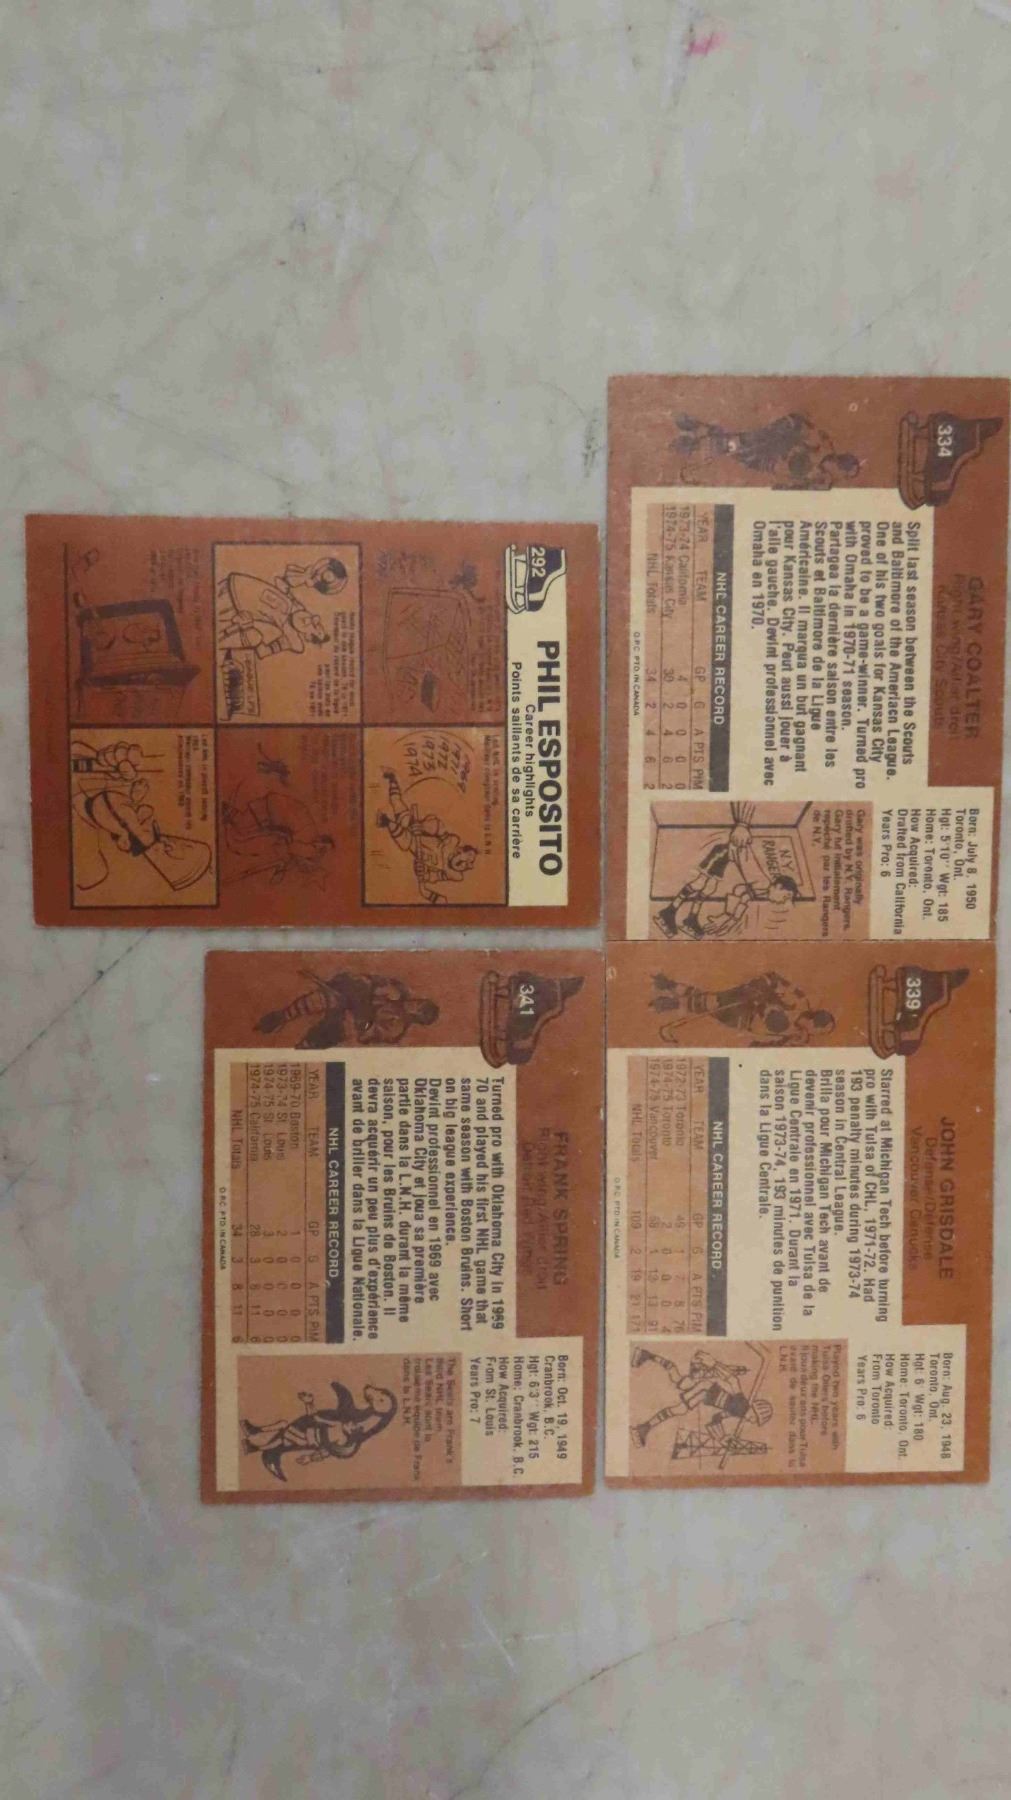 334
GARY COALTER
Kansas City Scouts
Split last season between the Scouts
and Baltimore of the Ameriacn League.
One of his two goals for Kansas City
proved to be a game-winner. Turned pro
with Omaha in 1970-71 season.
Partagea la dernière saison entre les
Scouts et Baltimore de la Ligue
Américaine. Il marqua un but gagnant
pour Kansas City. Peut aussi jouer à
l'aile gauche. Devint professionnel avec
Omaha en 1970.
NHL CAREER RECORD
YEAR TEAM GP G A PTS PIM
1973-74 California 4 0 0 0 0
1974-75 Kansas City 30 2 4 6 2
NHL Totals 34 2 4 6 2
O.P.C. PTD. IN CANADA
Born: July 8, 1950
Toronto, Ont.
Hgt: 5'10" Wgt: 185
Home: Toronto, Ont.
How Acquired:
Drafted from California
Years Pro: 6
Gary was originally
drafted by N.Y. Rangers.
Gary fut initialement
repêché par les Rangers
de N.Y.
N.Y.
RANGERS
339
JOHN GRISDALE
Defense/Défense
Vancouver Canucks
Starred at Michigan Tech before turning
pro with Tulsa of CHL, 1971-72. Had
193 penalty minutes during 1973-74
season in Central League.
Brilla pour Michigan Tech avant de
devenir professionnel avec Tulsa de la
Ligue Centrale en 1971. Durant la
saison 1973-74, 193 minutes de punition
dans la Ligue Centrale.
NHL CAREER RECORD
YEAR TEAM GP G A PTS PIM
1972-73 Toronto 49 1 7 8 76
1974-75 Toronto 2 0 0 0 4
1974-75 Vancouver 58 1 12 13 91
NHL Totals 109 2 19 21 171
O.P.C. PTD. IN CANADA
Born: Aug. 23, 1948
Toronto, Ont.
Hgt: 6' Wgt: 180
Home: Toronto, Ont.
How Acquired:
From Toronto
Years Pro: 6
Played two years with
Tulsa Oilers before
making the NHL.
Il joua deux ans pour Tulsa
avant de sauter dans la
L.N.H.
292
PHIL ESPOSITO
Career highlights
Points saillants de sa carrière
1969
1971
1972
1973
1974
341
FRANK SPRING
Right wing/Ailier droit
Turned pro with Oklahoma City in 1969
70 and played his first NHL game that
same season with Boston Bruins. Short
on big league experience.
Devint professionnel en 1969 avec
Oklahoma City et joua sa première
partie dans la L.N.H. durant la même
saison, pour les Bruins de Boston. Il
devra acquérir un peu plus d'expérience
avant de briller dans la Ligue Nationale.
NHL CAREER RECORD
YEAR TEAM GP G A PTS PIM
1969-70 Boston 1 0 0 0 0
1973-74 St. Louis 2 0 0 0 0
1974-75 St. Louis 3 0 0 0 0
1974-75 California 28 3 8 11 6
NHL Totals 34 3 8 11 6
O.P.C. PTD. IN CANADA
Born: Oct. 19, 1949
Cranbrook, B.C.
Hgt: 6'3" Wgt: 215
Home: Cranbrook, B.C.
How Acquired:
From St. Louis
Years Pro: 7
The Seals are Frank's
third NHL team.
Les Seals sont la
troisième équipe de Frank
dans la L.N.H.